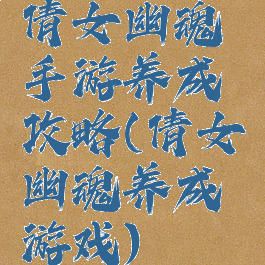 倩女幽魂
手游养成
攻略(倩女
幽魂养成
游戏)